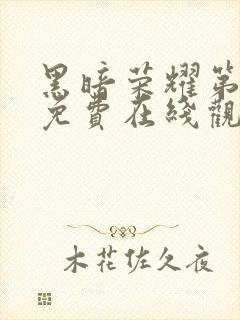 黑暗荣耀第
免費在綫觀
木花佐久夜